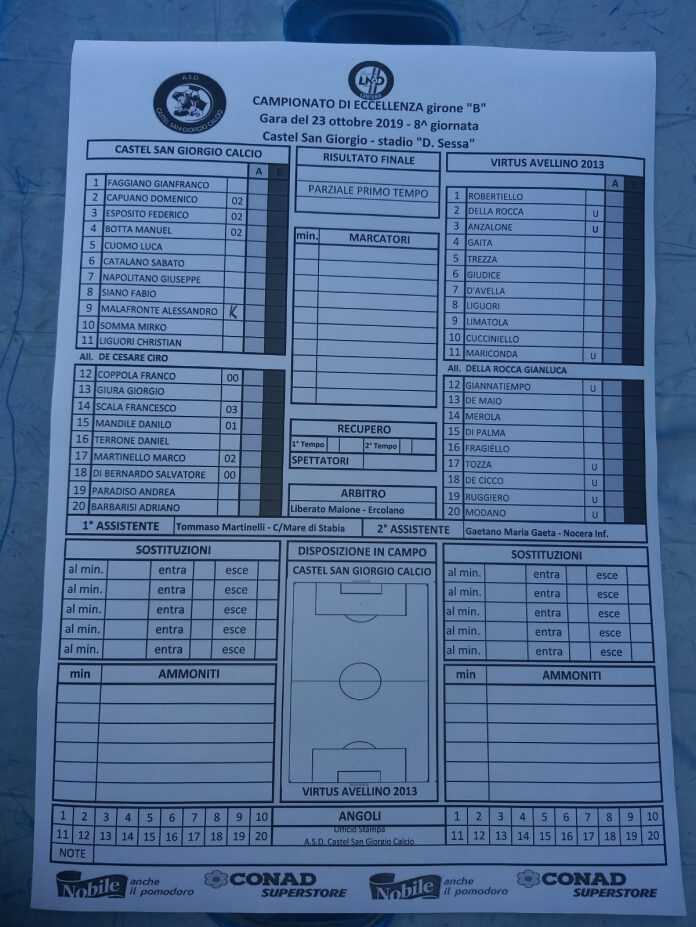 A.S.D.
CASTEL SAN GIORGIO CALCIO
LND
CAMPIONATO DI ECCELLENZA girone "B"
Gara del 23 ottobre 2019 - 8^ giornata
Castel San Giorgio - stadio "D. Sessa"
CASTEL SAN GIORGIO CALCIO
A
1 FAGGIANO GIANFRANCO
2 CAPUANO DOMENICO 02
3 ESPOSITO FEDERICO 02
4 BOTTA MANUEL 02
5 CUOMO LUCA
6 CATALANO SABATO
7 NAPOLITANO GIUSEPPE
8 SIANO FABIO
9 MALAFRONTE ALESSANDRO K
10 SOMMA MIRKO
11 LIGUORI CHRISTIAN
All. DE CESARE CIRO
12 COPPOLA FRANCO 00
13 GIURA GIORGIO
14 SCALA FRANCESCO 03
15 MANDILE DANILO 01
16 TERRONE DANIEL
17 MARTINELLO MARCO 02
18 DI BERNARDO SALVATORE 00
19 PARADISO ANDREA
20 BARBARISI ADRIANO
RISULTATO FINALE
PARZIALE PRIMO TEMPO
min. MARCATORI
RECUPERO
1° Tempo 2° Tempo
SPETTATORI
ARBITRO
Liberato Maione - Ercolano
VIRTUS AVELLINO 2013
A
1 ROBERTIELLO
2 DELLA ROCCA U
3 ANZALONE U
4 GAITA
5 TREZZA
6 GIUDICE
7 D'AVELLA
8 LIGUORI
9 LIMATOLA
10 CUCCINIELLO
11 MARICONDA U
All. DELLA ROCCA GIANLUCA
12 GIANNATIEMPO U
13 DE MAIO
14 MEROLA
15 DI PALMA
16 FRAGIELLO
17 TOZZA U
18 DE CICCO U
19 RUGGIERO U
20 MODANO U
1° ASSISTENTE Tommaso Martinelli - C/Mare di Stabia 2° ASSISTENTE Gaetano Maria Gaeta - Nocera Inf.
SOSTITUZIONI
al min. entra esce
al min. entra esce
al min. entra esce
al min. entra esce
al min. entra esce
min AMMONITI
DISPOSIZIONE IN CAMPO
CASTEL SAN GIORGIO CALCIO
VIRTUS AVELLINO 2013
SOSTITUZIONI
al min. entra esce
al min. entra esce
al min. entra esce
al min. entra esce
al min. entra esce
min AMMONITI
1 2 3 4 5 6 7 8 9 10 ANGOLI 1 2 3 4 5 6 7 8 9 10
11 12 13 14 15 16 17 18 19 20 Ufficio Stampa 11 12 13 14 15 16 17 18 19 20
A.S.D. Castel San Giorgio Calcio
NOTE
Nobile anche il pomodoro CONAD SUPERSTORE Nobile anche il pomodoro CONAD SUPERSTORE